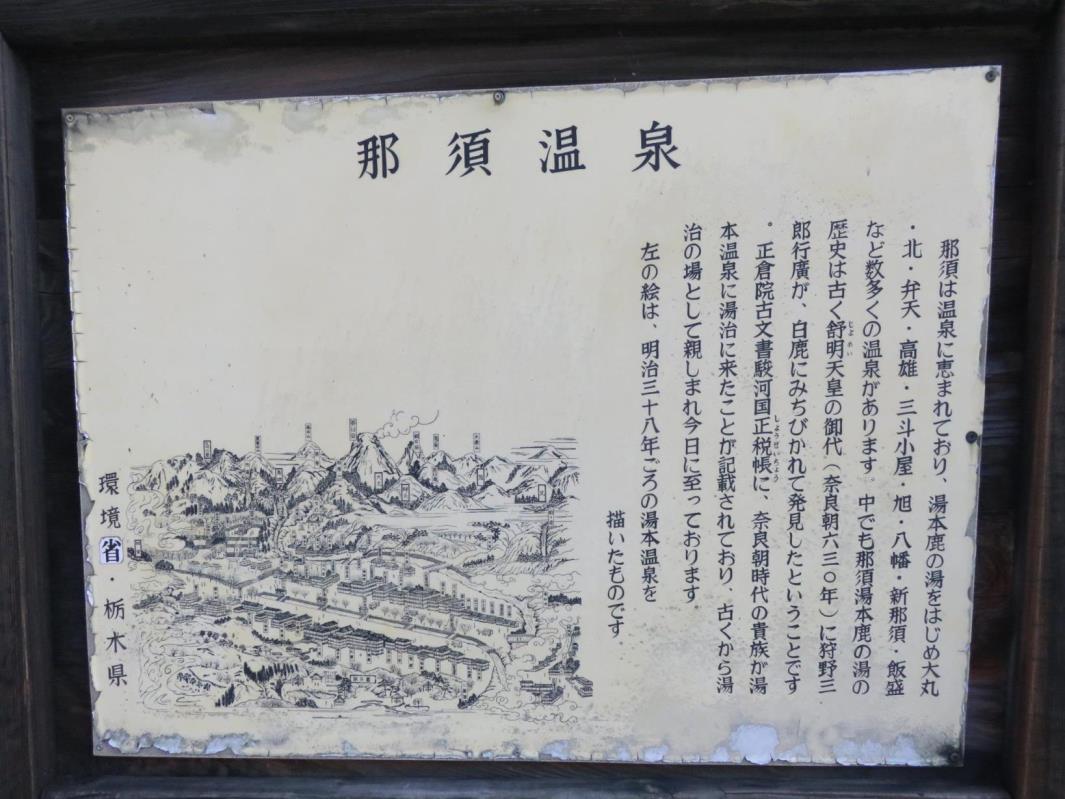 那須温泉
那須は温泉に恵まれており、湯本鹿の湯をはじめ大丸
・北・弁天・高雄・三斗小屋・旭・八幡・新那須・飯盛
など数多くの温泉があります。中でも那須湯本鹿の湯の
歴史は古く舒明天皇の御代（奈良朝六三〇年）に狩野三
じょめい
郎行廣が、白鹿にみちびかれて発見したということです
。正倉院古文書駿河国正税帳に、奈良朝時代の貴族が湯
しょうぜいちょう
本温泉に湯治に来たことが記載されており、古くから湯
治の場として親しまれ今日に至っております。
左の絵は、明治三十八年ごろの湯本温泉を
描いたものです。
環境省・栃木県